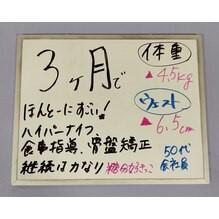 3ヶ月で
ほんとーにすごい!
ハイパーナイフ
食事指導、骨盤矯正
継続は力なり
糖分好きっこ
体重
▲4.5kg
ウェスト
▲6.5cm
50代
会社員